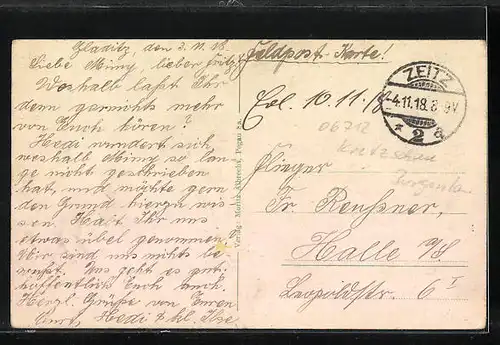 Gladitz, den 3.11.18.
Liebe Miny, lieber Fritz!
Weshalb laßt Ihr
denn garnichts mehr
von Euch hören?
Hedi wundert sich
weshalb Miny so lan-
ge nicht geschrieben
hat, und möchte gern
den Grund hierzu wis-
sen. Habt Ihr uns
etwas übel genommen?
Wir sind uns nichts be-
wußt. Uns geht es gut,
hoffentlich Euch auch.
Herzl. Grüße von Euren
Curt, Hedi & kl. Ilse
Verlag: Albrecht, Pegau
Feldpost-Karte!
Erl. 10.11.18
ZEITZ
-4.11.18. 8-9V.
* 2 a
06712
Kretzschau
Flieger
Fr. Reußner,
Halle a/S.
Leopoldstr. 6 I